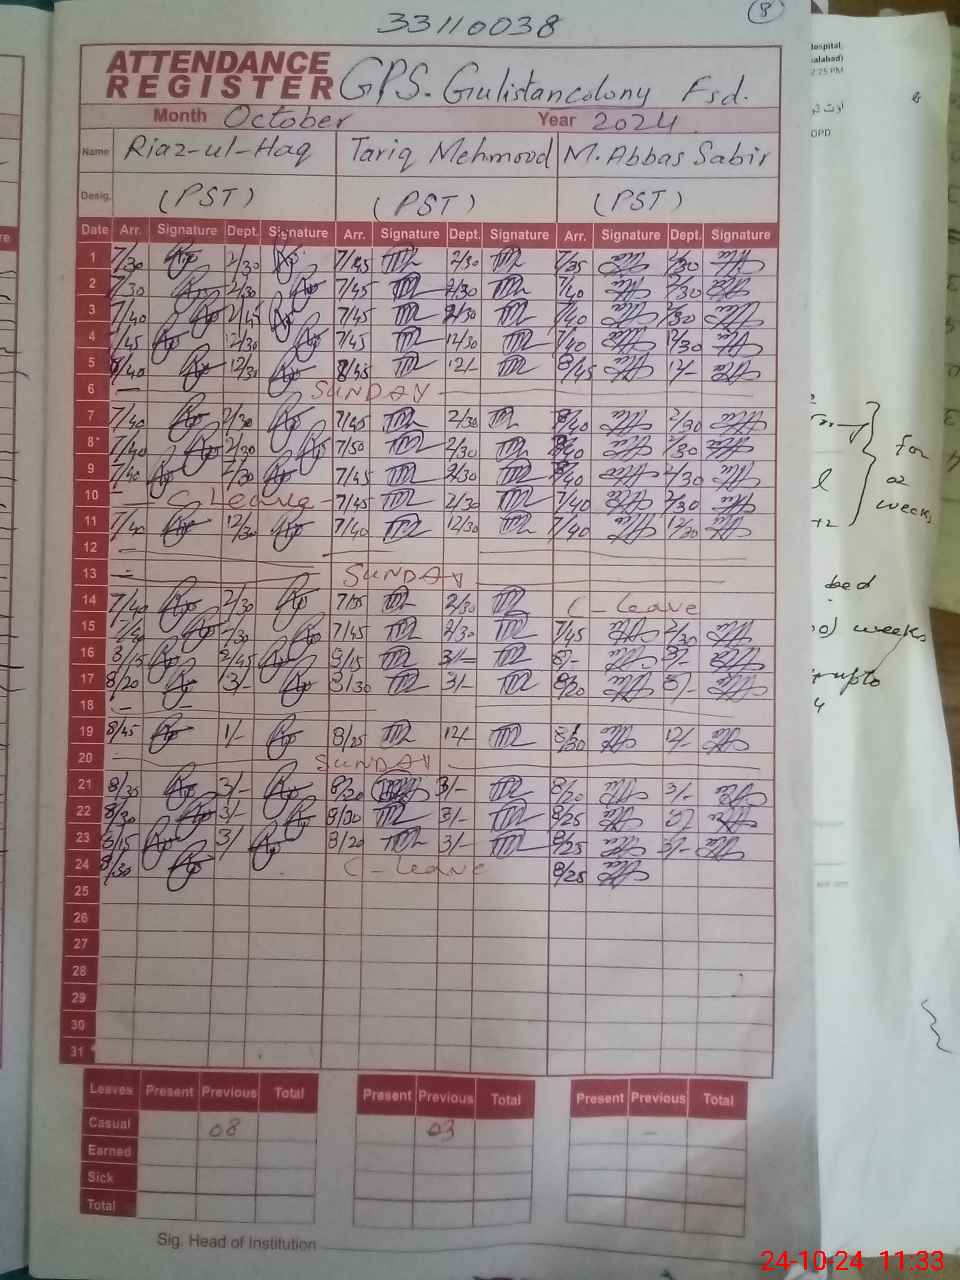 33110038
8
ATTENDANCE REGISTER GPS. Gulistancolony Fsd.
Month October Year 2024
Name Riaz-ul-Haq Tariq Mehmood M. Abbas Sabir
Desig. (PST) (PST) (PST)
Date Arr. Signature Dept. Signature Arr. Signature Dept. Signature Arr. Signature Dept. Signature
1 7/30 2/30 7/45 2/30 7/35 2/30
2 7/30 2/30 7/45 2/30 7/40 2/30
3 7/40 2/45 7/45 2/30 7/40 2/30
4 7/45 12/30 7/45 12/30 7/40 12/30
5 8/40 12/30 8/45 12/- 8/45 12/-
6 SUNDAY
7 7/40 2/30 7/45 2/30 7/40 2/30
8 7/40 2/30 7/50 2/30 7/40 2/30
9 7/40 2/30 7/45 2/30 7/40 2/30
10 C-Leave 7/45 2/30 7/40 2/30
11 7/40 12/30 7/40 12/30 7/40 12/30
12
13 SUNDAY
14 7/40 2/30 7/35 2/30 C-Leave
15 7/40 2/30 7/45 2/30 7/45 2/30
16 8/15 2/45 8/15 3/- 8/- 3/-
17 8/20 3/- 8/30 3/- 8/20 3/-
18
19 8/45 1/- 8/25 12/- 8/30 12/-
20 SUNDAY
21 8/35 3/- 8/20 3/- 8/20 3/-
22 8/30 3/- 8/30 3/- 8/25 3/-
23 8/15 3/ 8/20 3/- 8/25 3/-
24 8/30 C-Leave 8/25
25
26
27
28
29
30
31
Leaves Present Previous Total Present Previous Total Present Previous Total
Casual 08 03 -
Earned
Sick
Total
Sig. Head of Institution
Hospital,
2:25 PM
OPD
for
02
weeks
bed
weeks
upto
24-10-24 11:33